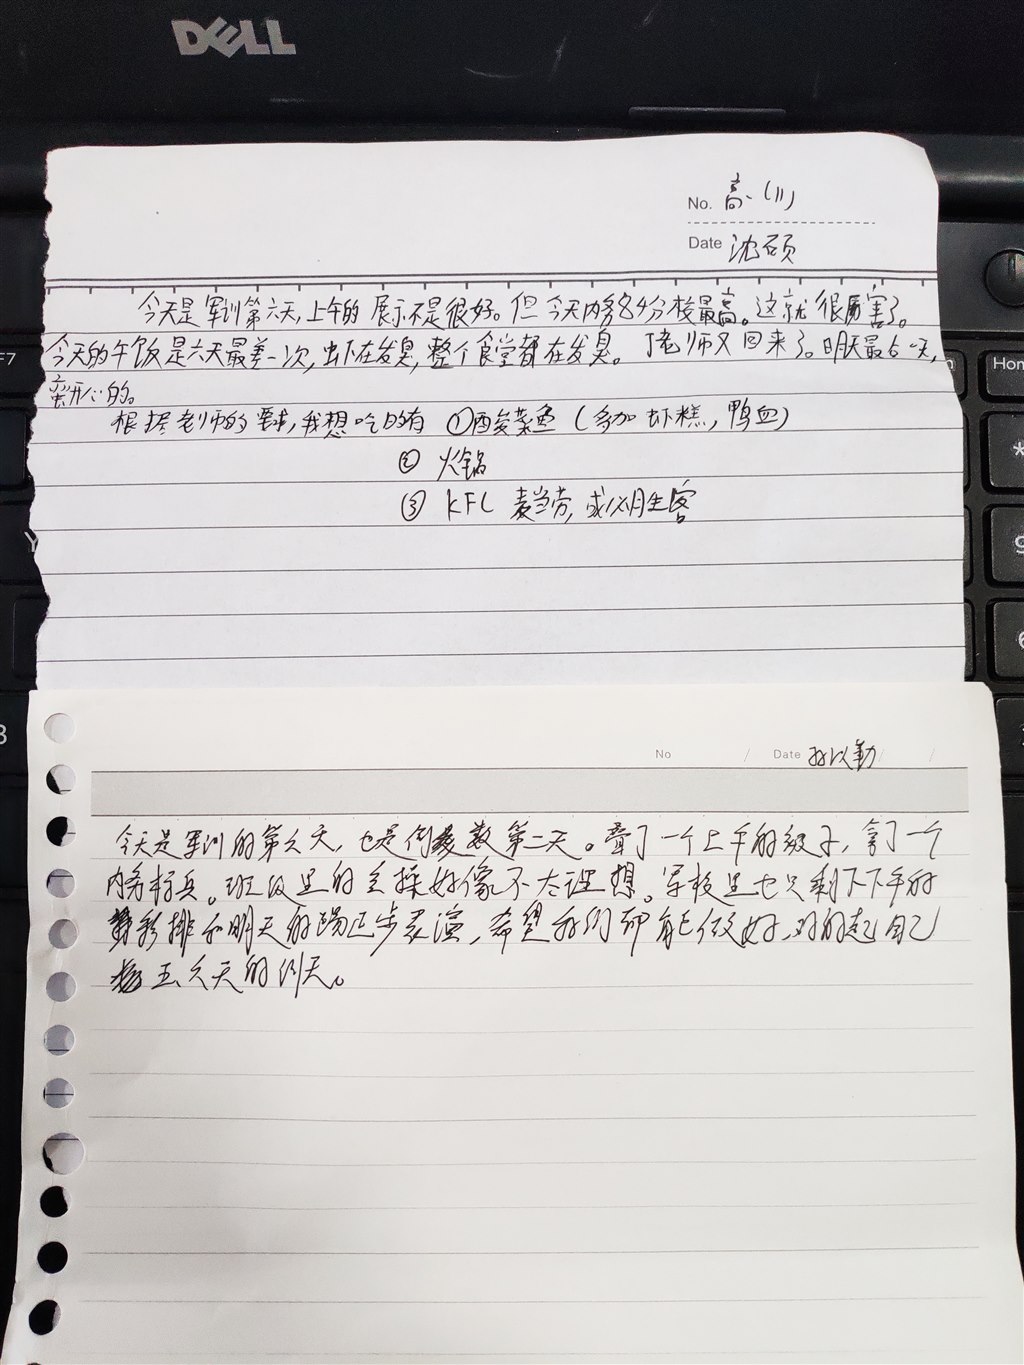 DELL
No. 高一(11)
Date 沈硕
今天是军训第六天,上午的展示不是很好。但今天内务84分校最高。这就很厉害了。
今天的午饭是六天最差一次,虾在发臭,整个食堂都在发臭。丁老师又回来了。明天最后一天,
蛮开心的。
根据老师的要求,我想吃的有 ①酸菜鱼(多加虾糕,鸭血)
② 火锅
③ KFC 麦当劳,或必胜客
F7
Hom
No / Date 孙以勤 / /
今天是军训的第六天,也是倒数第二天。叠了一个上午的被子,拿了一个
内务标兵。班级里的会操好像不太理想。军校里也只剩下下午的
彩排和明天的踢正步表演,希望我们都能做好,对的起自己
五六天的训天。